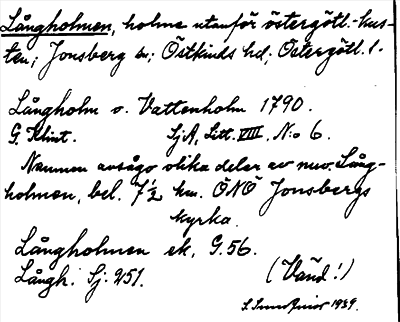 Långholmen, holme utanför östergötl.-kus-
ten; Jonsberg sn; Östkinds hd; Östergötl. l.
Långholm o. Vattenholm 1790.
G. Klint. SjA, Litt. VIII, N:o 6.
Namnen avsågo olika delar av nuv. Lång-
holmen, bel. 7 1/2 km. ONO Jonsbergs
kyrka.
Långholmen ek. G. 56.
Långh. Sj: 251. (Vänd!)
1939.